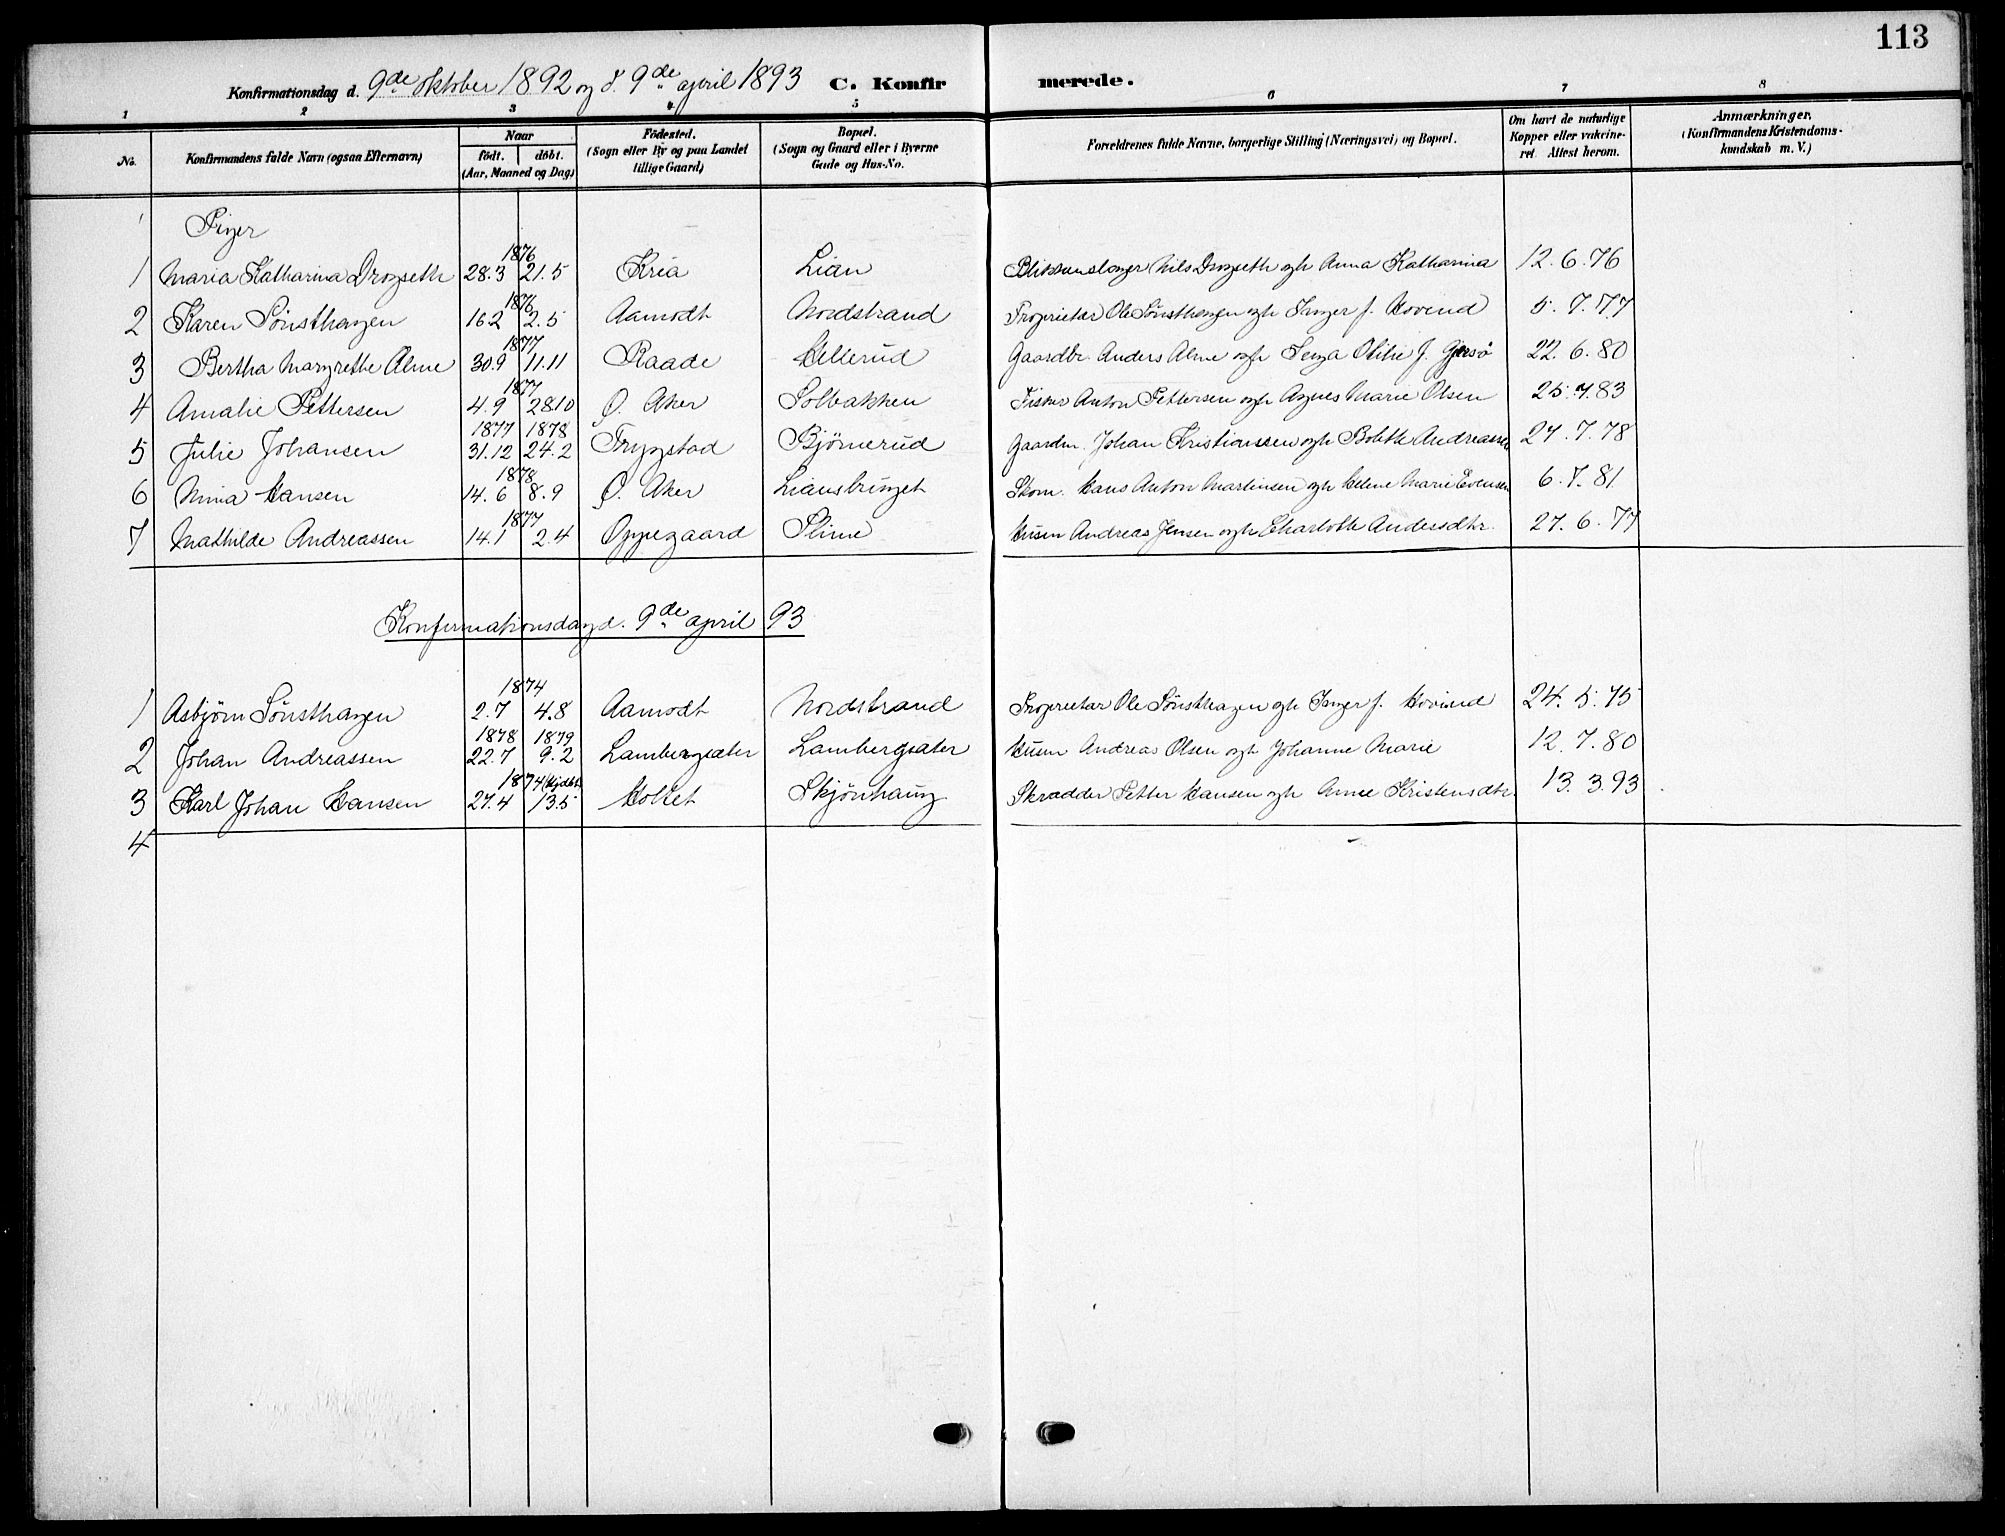 113
Konfirmationsdag d. 9de oktober 1892 og d. 9de april 1893 C. Konfirmerede.
1 2 3 4 5 6 7 8
No. Konfirmandens fulde Navn (ogsaa Efternavn) Naar födt. döbt. (Aar, Maaned og Dag) Födested. (Sogn eller By og paa Landet tillige Gaard) Bopæl. (Sogn og Gaard eller i Byerne Gade og Hus-No. Forældrenes fulde Navne, borgerlige Stilling (Næringsvei) og Bopæl. Om havt de naturlige Kopper eller vakcineret. Attest herom. Anmærkninger. (Konfirmandens Kristendomskundskab m. V.)
Piger
1876
1 Maria Katharina Drogseth 28.3 21.5 Kria Lian Blikkenslager Nils Drogseth ogh Anna Katharina 12.6.76
1876
2 Karen Sønsthagen 16.2 2.5 Aamodt Nordstrand Proprietær Ole Sønsthagen ogh Inger f. Hovind 5.7.77
1877
3 Bertha Margrethe Alme 30.9 11.11 Raade Hellerud Gaardbr. Anders Alme ogh Inga Otilie f. Gjersø 22.6.80
1877
4 Amalie Pettersen 4.9 28.10 Ø. Aker Solbakken Fisker Anton Pettersen ogh Agnes Marie Olsen 25.7.83
1877 1878
5 Julie Johansen 31.12 24.2 Trygstad Bjørnerud Gaardm. Johan Kristianssen ogh Bolette Andreassen 27.7.78
1878
6 Nina Hansen 14.6 8.9 Ø. Aker Liansbruget Skom. Hans Anton Martinsen ogh Helene Marie Evensen 6.7.81
1877
7 Mathilde Andreassen 14.1 2.4 Oppegaard Slime Husm Andreas Jensen ogh Charlotte Andersdtr. 27.6.77
Konfirmationsdag d. 9de april 93
1874
1 Asbjørn Sønsthagen 2.7 4.8 Aamodt Nordstrand Proprietær Ole Sønsthagen ogh Inger f. Hovind 24.5.75
1878 1879
2 Johan Andreassen 22.7 9.2 Lambergsæter Lambergsæter Husm Andreas Olsen ogh Johanne Marie 12.7.80
1874 (hjdbt)
3 Karl Johan Hansen 27.4 13.5 Holtet Skjønhaug Skrædder Petter Hansen ogh Anne Kristensdtr. 13.3.93
4